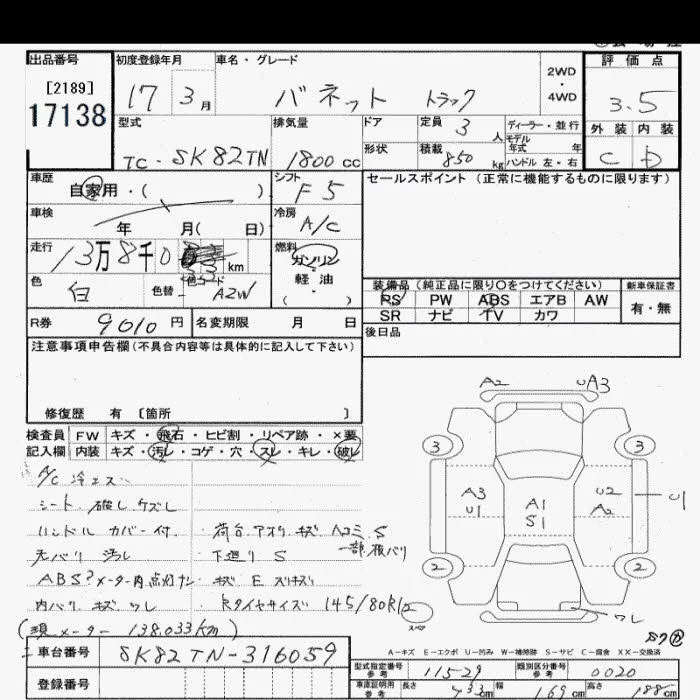 出品番号
[2189]
17138
初度登録年月
17 3月
車名・グレード
バネット トラック
2WD
・
4WD
評価点
3.5
外装 内装
C D
型式
TC-SK82TN
排気量
1800cc
ドア
定員 3人
形状
積載 850kg
ディーラー・並行
モデル
年式 年
ハンドル 左・右
車歴
自家用・( )
シフト
F5
セールスポイント (正常に機能するものに限ります)
車検
年 月( 日)
冷房
A/C
走行
13万8千0 km
燃料
ガソリン
軽油
( ・ )
色
白
色替
色コード
A2W
装備品(純正品に限り○をつけてください)
新車保証書
PS PW ABS エアB AW
有・無
SR ナビ TV カワ
R券
9010円
名変期限 月 日
後日品
注意事項申告欄(不具合内容等は具体的に記入して下さい)
修復歴 有 〔箇所 〕
検査員 FW キズ・飛石・ヒビ割・リペア跡・×要
記入欄 内装 キズ・汚レ・コゲ・穴・スレ・キレ・破レ
A/C 冷エズ
シート 破レ ケズレ
ハンドル カバー付
・荷台アオリ キズ Aコミ S
一部板バリ
天バリ 汚レ
・下廻り S
ABS?メーター内点灯ナシ
・キズ E
内バリ キズ ワレ
・Rタイヤサイズ 145/80R12
スペア
(現メーター 138.033km)
A2
UA3
3
3
A3
U1
A1
S1
U2
A2
U1
2
2
ワレ
A-キズ E-エクボ U-凹み W-補修跡 S-サビ C-腐食 XX-交換済
車台番号
SK82TN-316059
登録番号
型式指定番号
参考
11529
類別区分番号
参考
0020
車庫証明用
参考
長さ 433cm
幅 169cm
高さ 188cm